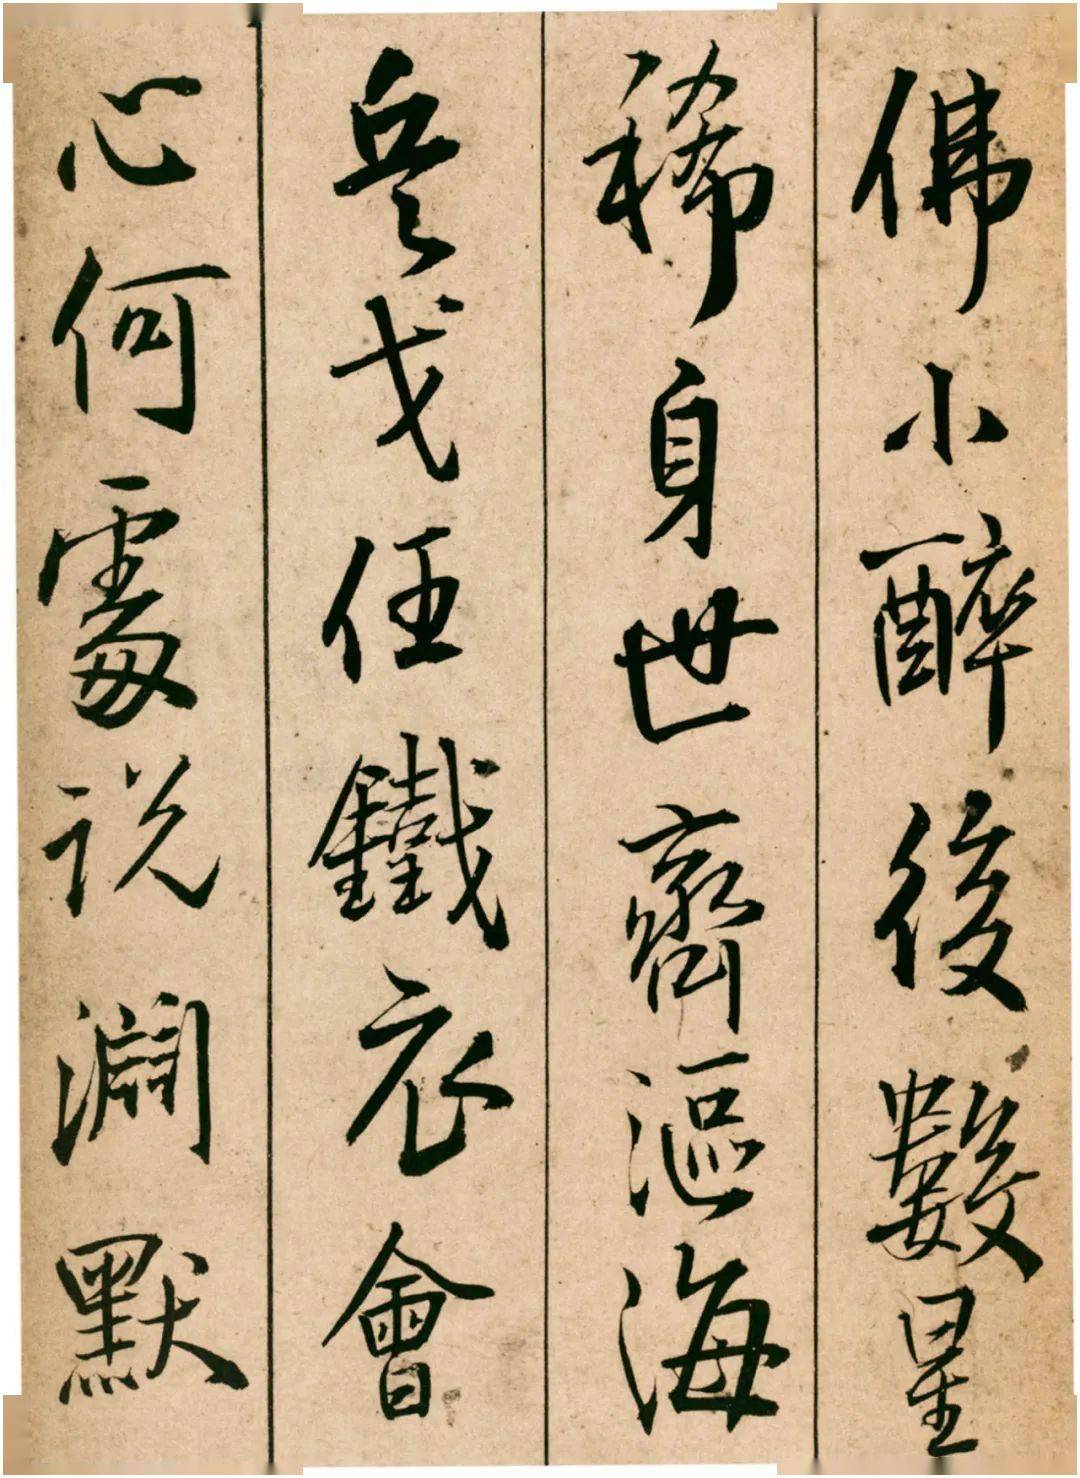 佛小醉後數星
稀身世齊漚海
兵戈任鐵衣會
心何處說淵默